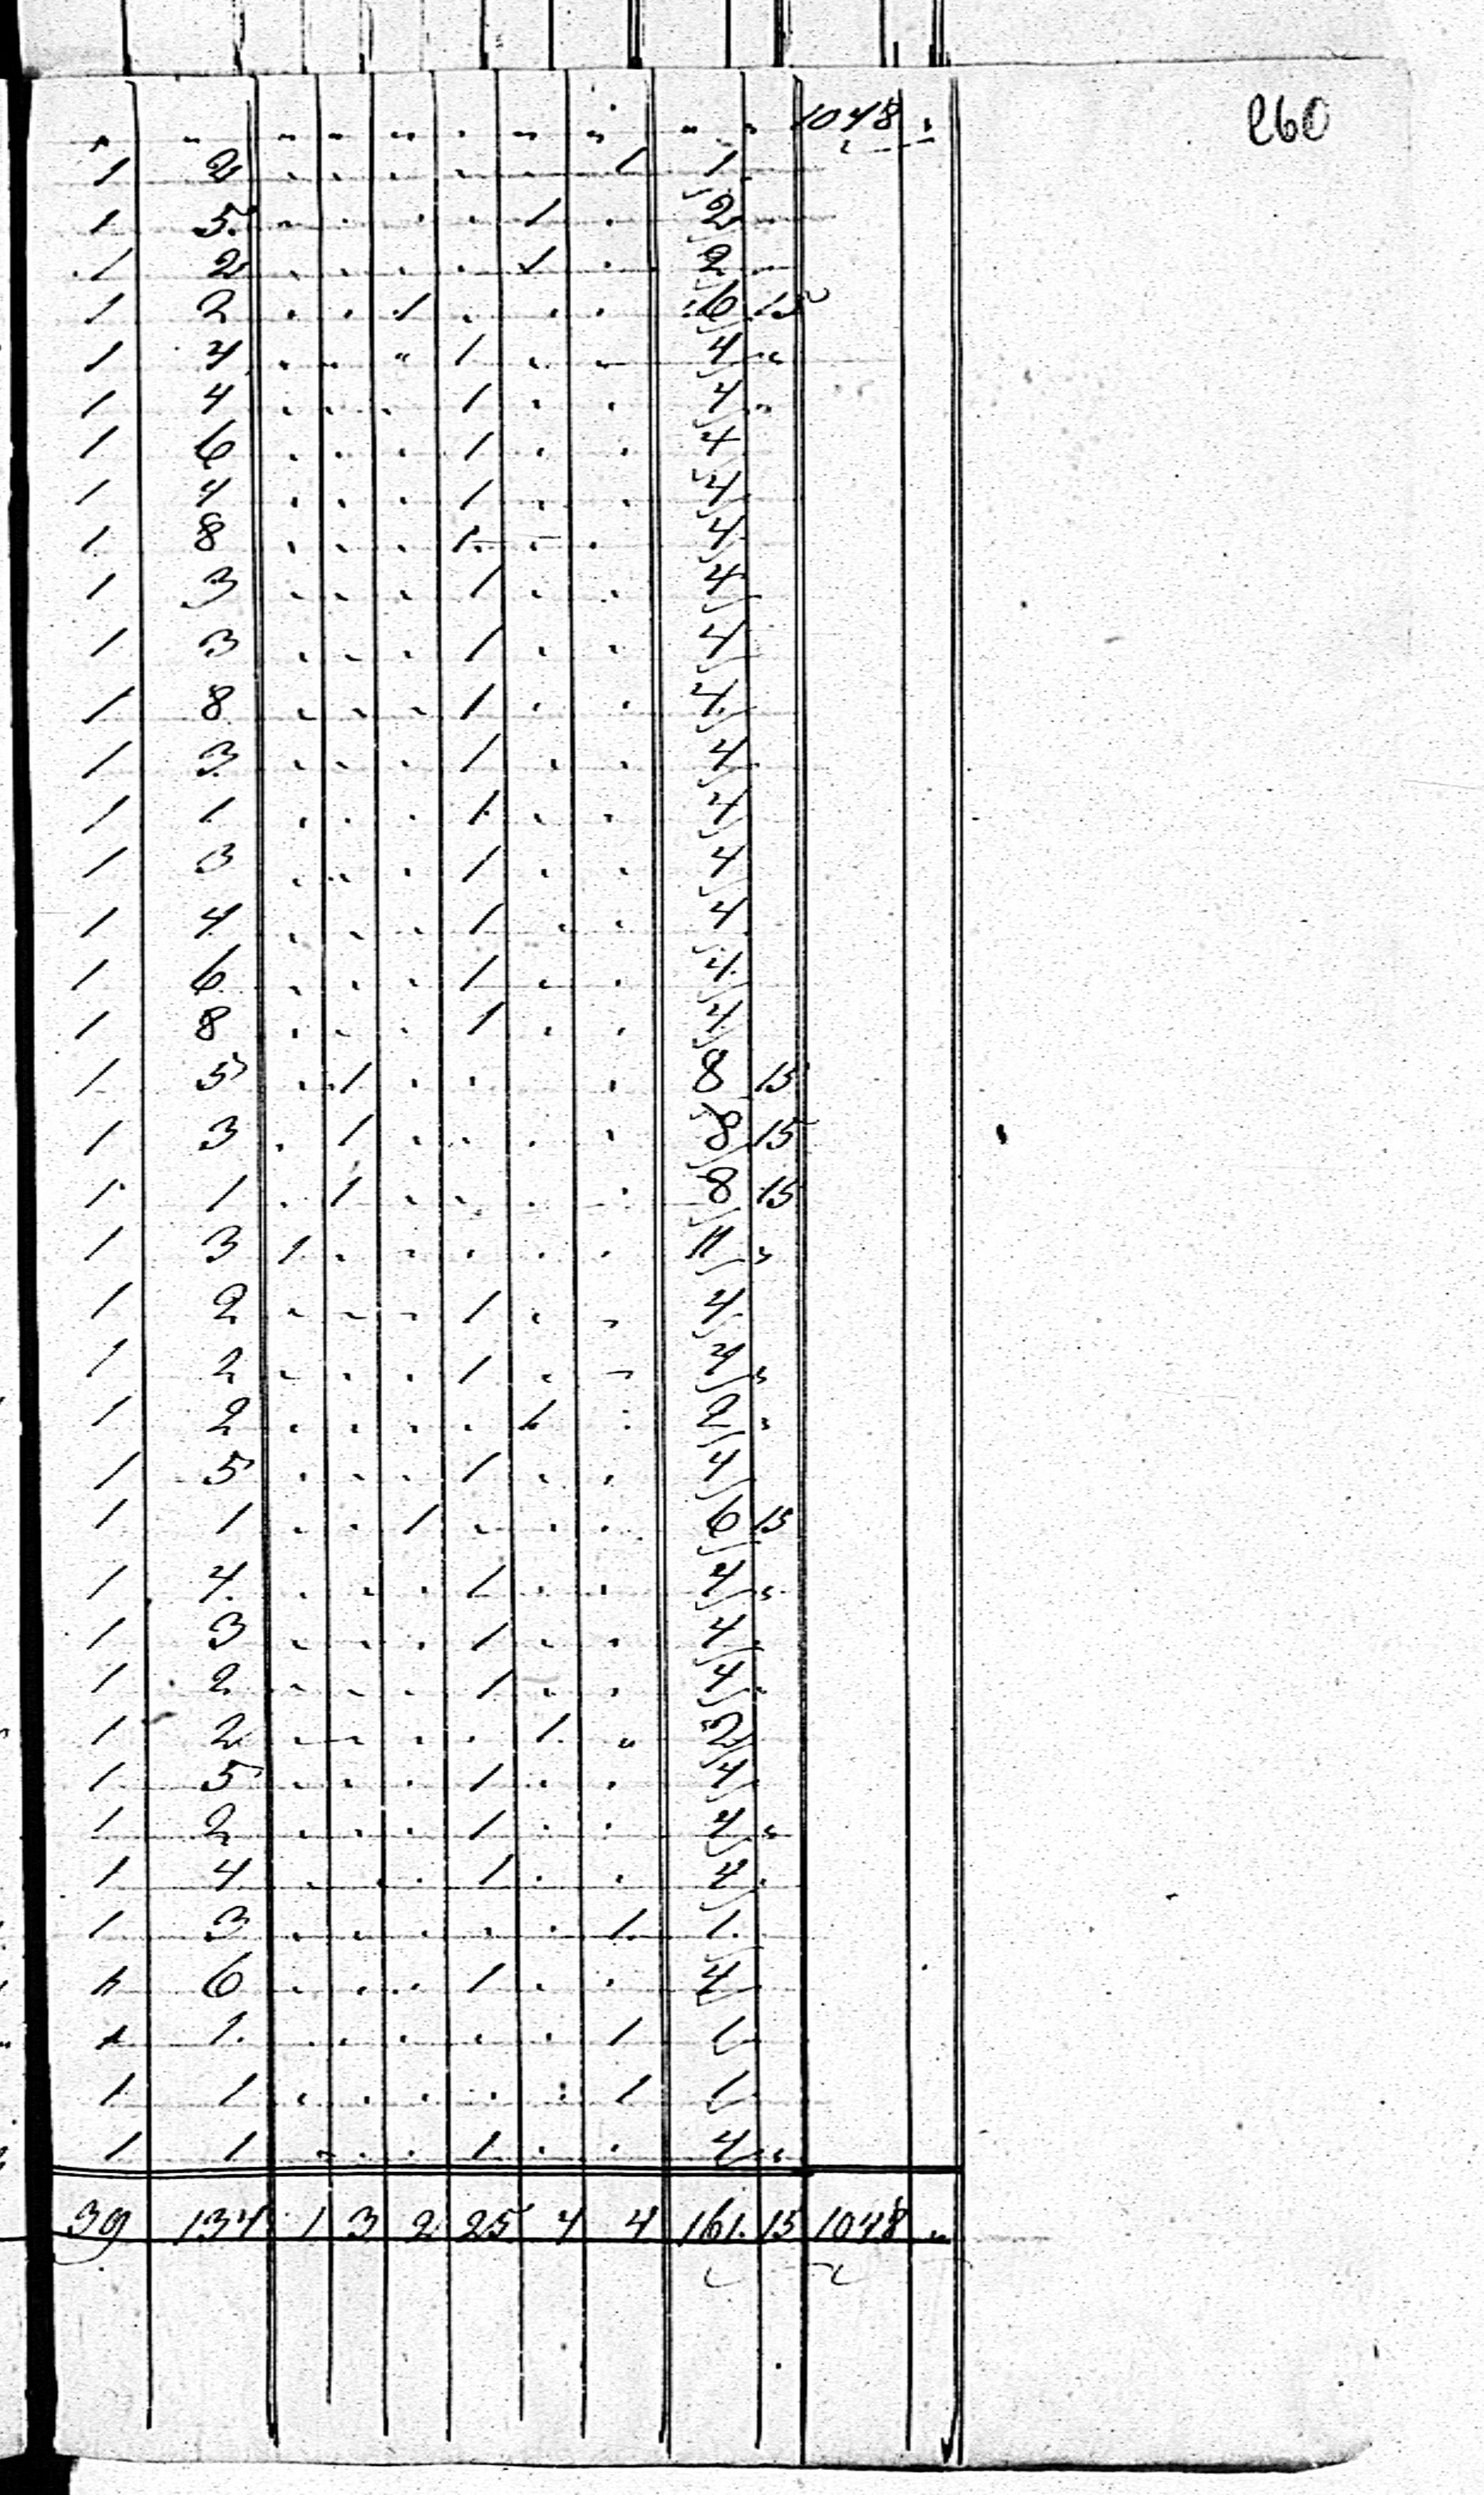 260
" " " " " " " " " " 1048 "
1 2 . . . . . 1 1
1 5 . . . . 1 . 2
1 2 . . . . 1 . 2
1 2 . . 1 . . . 6 15
1 4 . . " 1 . . 4 "
1 4 . . . 1 . . 4 "
1 6 . . . 1 . . 4
1 4 . . . 1 . . 4
1 8 . . . 1 . . 4
1 3 . . . 1 . . 4
1 3 . . . 1 . . 4
1 8 . . . 1 . . 4
1 3 . . . 1 . . 4
1 1 . . . 1 . . 4
1 3 . . . 1 . . 4
1 4 . . . 1 . . 4
1 6 . . . 1 . . 4
1 8 . . . 1 . . 4
1 5 . 1 . . . 8 15
1 3 . 1 . . . . 8 15
1 1 . 1 . . . . 8 15
1 3 1 . . . . . 11 "
1 2 . . . 1 . . 4
1 2 . . . 1 . . 4 "
1 2 . . . . 1 . 2 "
1 5 . . . 1 . . 4
1 1 . . 1 . . . 6 15
1 4 . . . 1 . . 4 "
1 3 . . . 1 . . 4
1 2 . . . 1 . . 4 .
1 2 . . . . 1 " 2
1 5 . . . 1 . . 4
1 2 . . . 1 . . 4 "
1 4 . . . 1 . . 4 .
1 3 . . . . . 1 1
1 6 . . . 1 . . 4
1 1 . . . . . 1 1
1 1 . . . . . 1 1
1 1 . . . 1 . . 4 "
39 134 1 3 2 25 4 4 161 15 1048 "